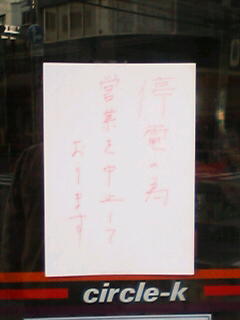 停電の為
営業を中止して
おります
circle-k